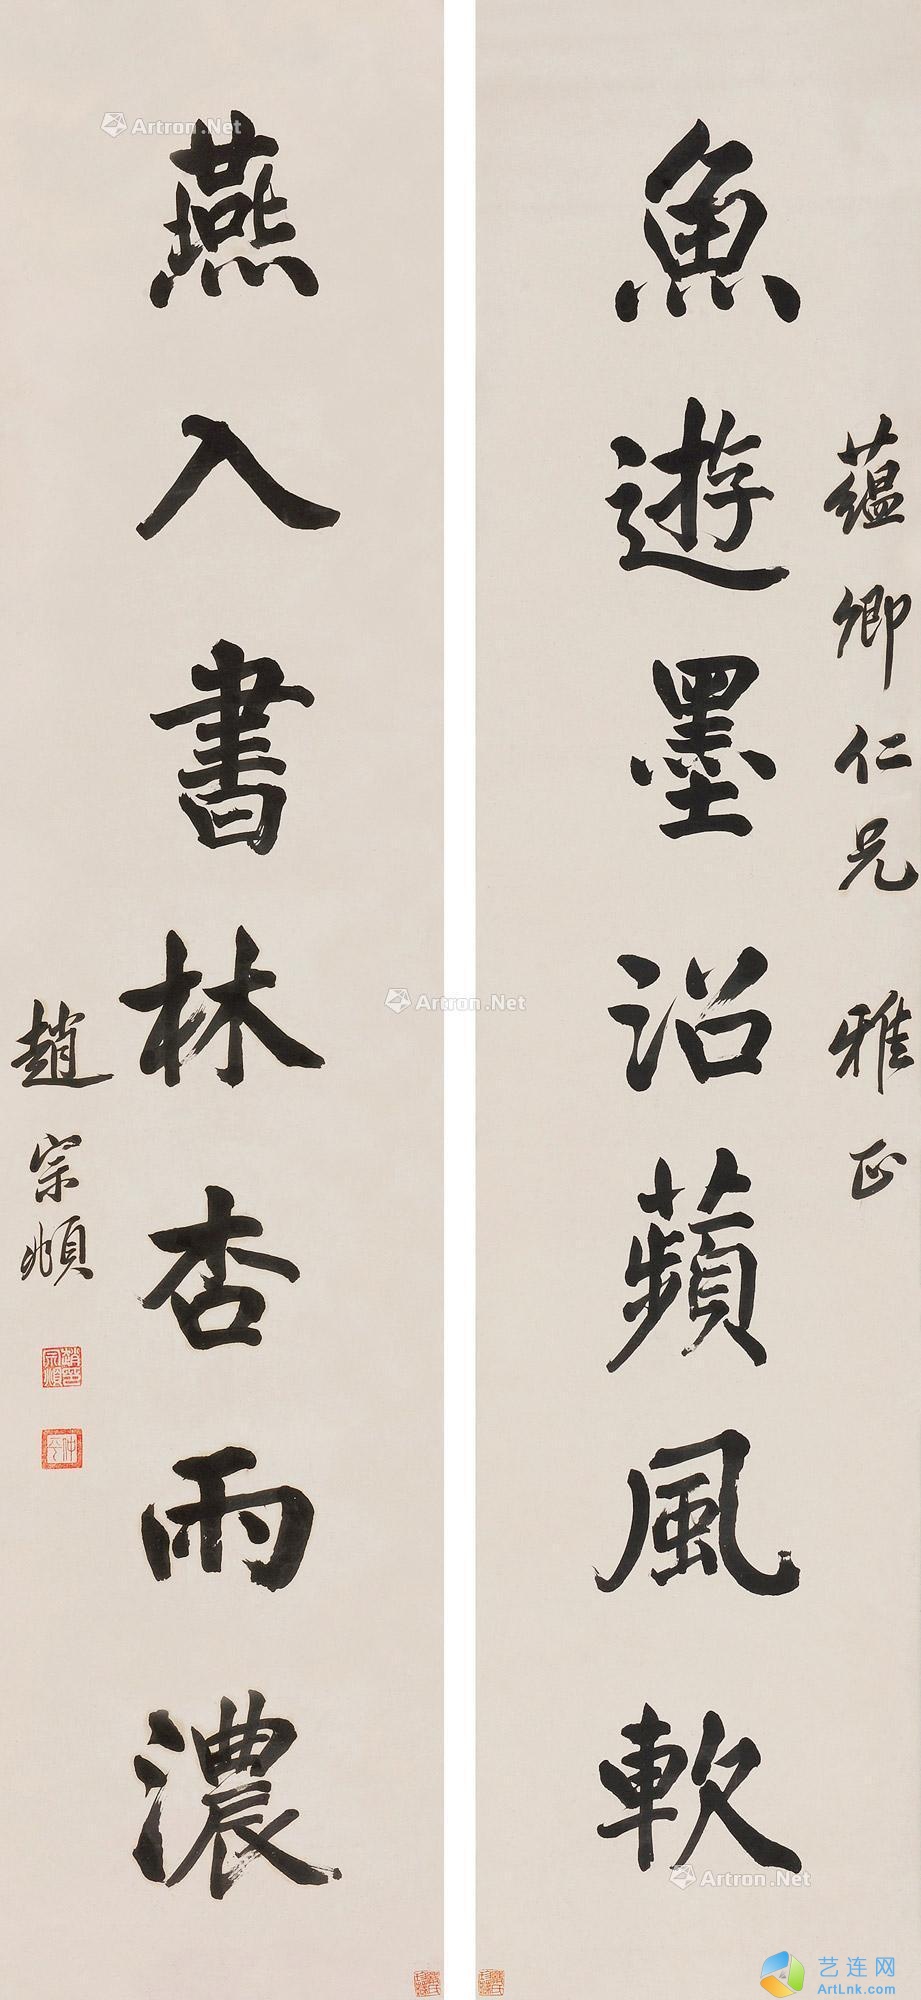 蘊卿仁兄雅正
魚遊墨沼蘋風軟
燕入書林杏雨濃
趙宗頫
Artron.Net
Artron.Net
Artron.Net
艺连网
ArtLnk.com